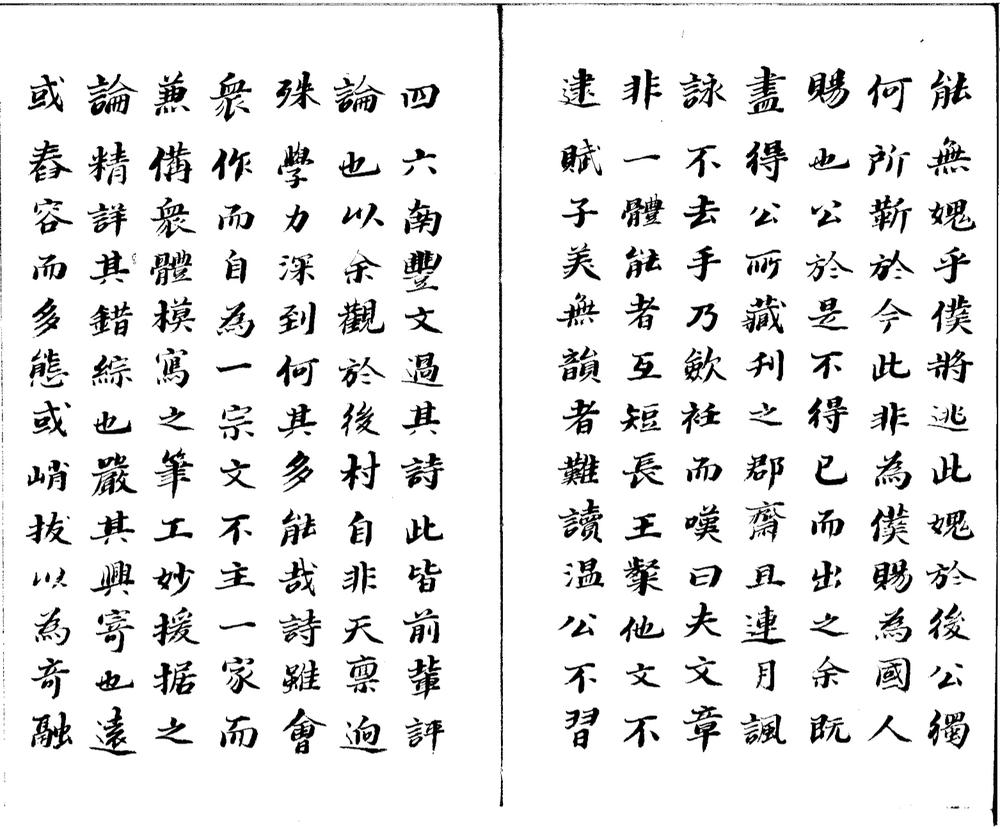 能無媿乎僕將逃此媿於後公獨
何所靳於今此非為僕賜為國人
賜也公於是不得已而出之余既
盡得公所藏刊之郡齋且連月諷
詠不去手乃歛衽而嘆曰夫文章
非一體能者互短長王粲他文不
逮賦子美無韻者難讀温公不習
四六南豐文過其詩此皆前輩評
論也以余觀於後村自非天禀逈
殊學力深到何其多能哉詩雖會
衆作而自為一宗文不主一家而
兼備衆體模寫之筆工妙援据之
論精詳其錯綜也嚴其興寄也遠
或舂容而多態或峭拔以為竒融